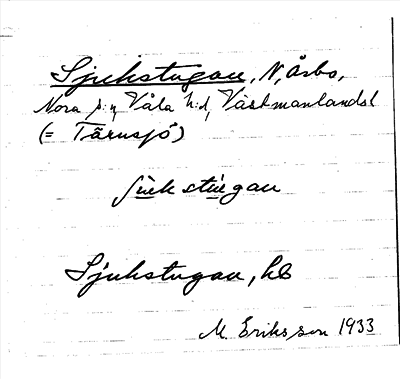 Sjukstugan, N, Årbo,
Nora s:n, Våla h:d, Västmanlands l
(= Tärnsjö)
ʃuk stugan
Sjukstugan, hs
M. Eriksson 1933